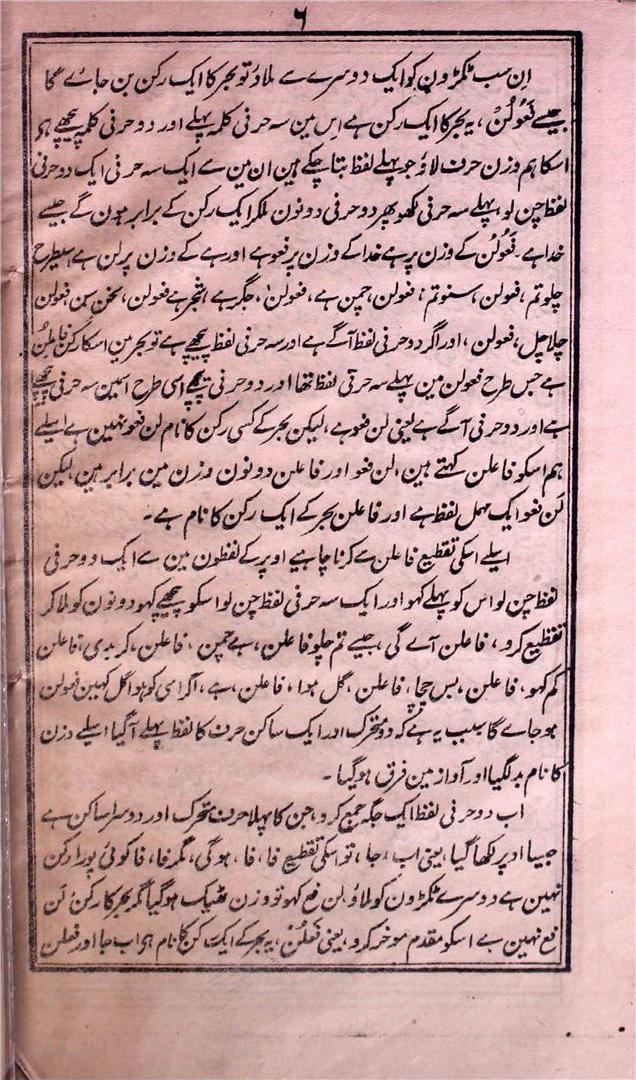 ۶
اِن سب ٹکڑون کو ایک دوسرے سے ملاؤ تو بحر کا ایک رکن بن جاے گا
جیسے فَعُولُنْ، یہ بحر کا ایک رکن ہے اس مین سہ حرفی کلمہ پہلے اور دو حرفی کلمہ پیچھے ہے
اسکا ہم وزن حرف لاؤ جو پہلے لفظ بتا چکے ہین ان مین سے ایک سہ حرفی ایک دو حرفی
لفظ چن لو پہلے سہ حرفی لکھو پھر دو حرفی دونون ملکر ایک رکن کے برابر ہون گے جیسے
خدا ہے۔ فَعُولُن کے وزن پر ہے خدا کے وزن پر فعو ہے اور ہے کے وزن پر لن ہے اسیطرح
چلو تم، فعولن، سنو تم، فعولن، چمن ہے، فعولن، جگر ہے، شجر ہے فعولن، سخن سن فعولن
چلا چل، فعولن، اور اگر دو حرفی لفظ آگے ہے اور سہ حرفی لفظ پیچھے ہے تو بحر مین اسکا رکن فاعلنُ
ہے جس طرح فعولن مین پہلے سہ حرفی لفظ تھا اور دو حرفی پیچھے اسی طرح اسمین سہ حرفی پیچھے
ہے اور دو حرفی آگے ہے یعنی لن فعو ہے، لیکن بحر کے کسی رکن کا نام لن فعو نہین ہے اسلیے
ہم اسکو فاعلن کہتے ہین، لن فعو اور فاعلن دونون وزن مین برابر ہین لیکن
لن فعو ایک مہمل لفظ ہے اور فاعلن بحر کے ایک رکن کا نام ہے۔
اسلیے اسکی تقطیع فاعلن سے کرنا چاہیے اوپر کے لفظون مین سے ایک دو حرفی
لفظ چن لو اس کو پہلے کہو اور ایک سہ حرفی لفظ چن لو اسکو پیچھے کہو دونون کو ملا کر
تقطیع کرو، فاعلن آے گی، جیسے تم چلو فاعلن، ہے چمن، فاعلن، کر بدی، فاعلن
کم کہو، فاعلن، بس چچا، فاعلن، گل ہوا، فاعلن، ہے، اگر اسی کو ہوا گل کہین فعولن
ہو جاے گا سبب یہ ہے کہ دو متحرک اور ایک ساکن حرف کا لفظ پہلے آگیا اسلیے وزن
کا نام بدلگیا اور آواز مین فرق ہوگیا۔
اب دو حرفی لفظ ایک جگہ جمع کرو، جن کا پہلا حرف متحرک اور دوسرا ساکن ہے
جیسا اوپر لکھا گیا، یعنی اب، جا، تو اسکی تقطیع فا، فا، ہوگی، مگر فا، فا کوئی پورا رکن
نہین ہے دوسرے ٹکڑون کو لاؤ لن فع کہو تو وزن ٹھیک ہوگیا مگر بحر کا رکن لن
فع نہین ہے اسکو مقدم موخر کرو، یعنی فَعْلُنْ، یہ بحر کے ایک رکن کا نام ہے اب جا اور فعلن